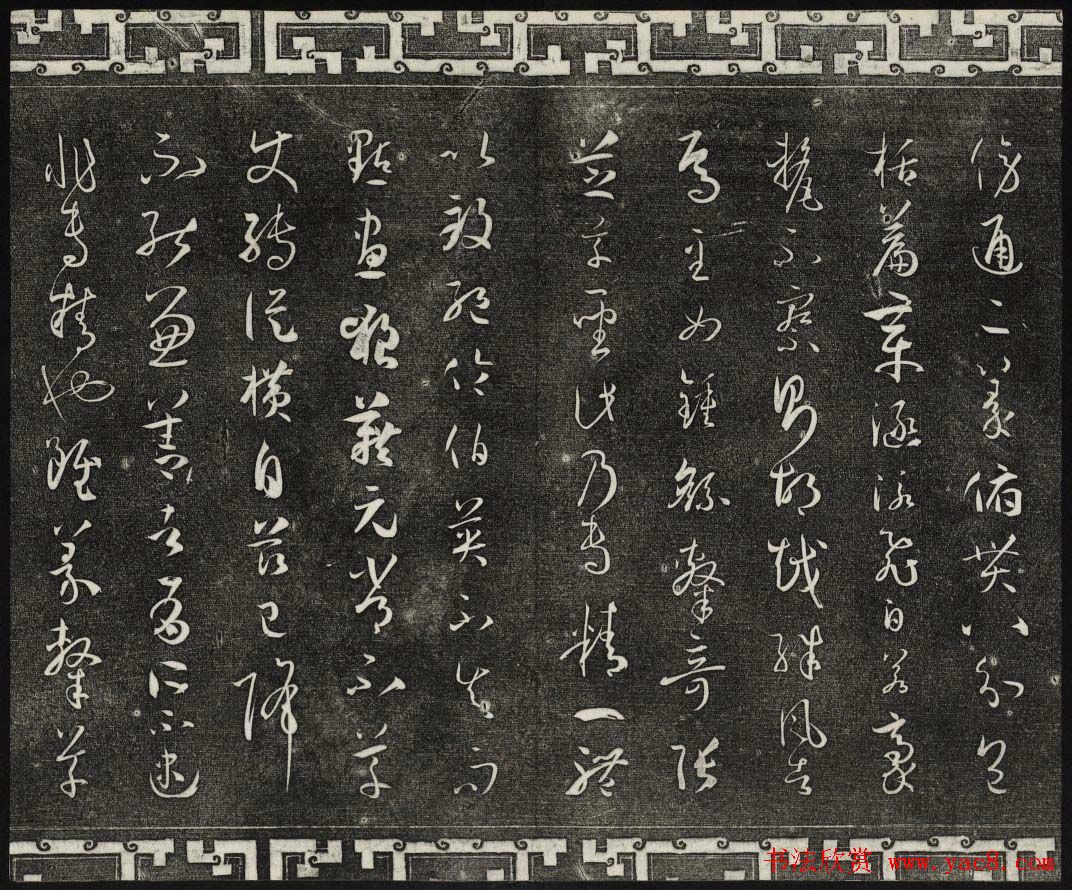 傍通二篆俯貫八分包
括篇章涵泳飛白若豪
釐不察則胡越殊風者
焉至如鍾繇隸奇張
芝草聖此乃專精一體
以致絕倫伯英不真而
點畫狼藉元常不草
使轉縱橫自茲已降
不能兼善者有所不逮
非專精也雖篆隸草
书法欣赏 www.yac8.com